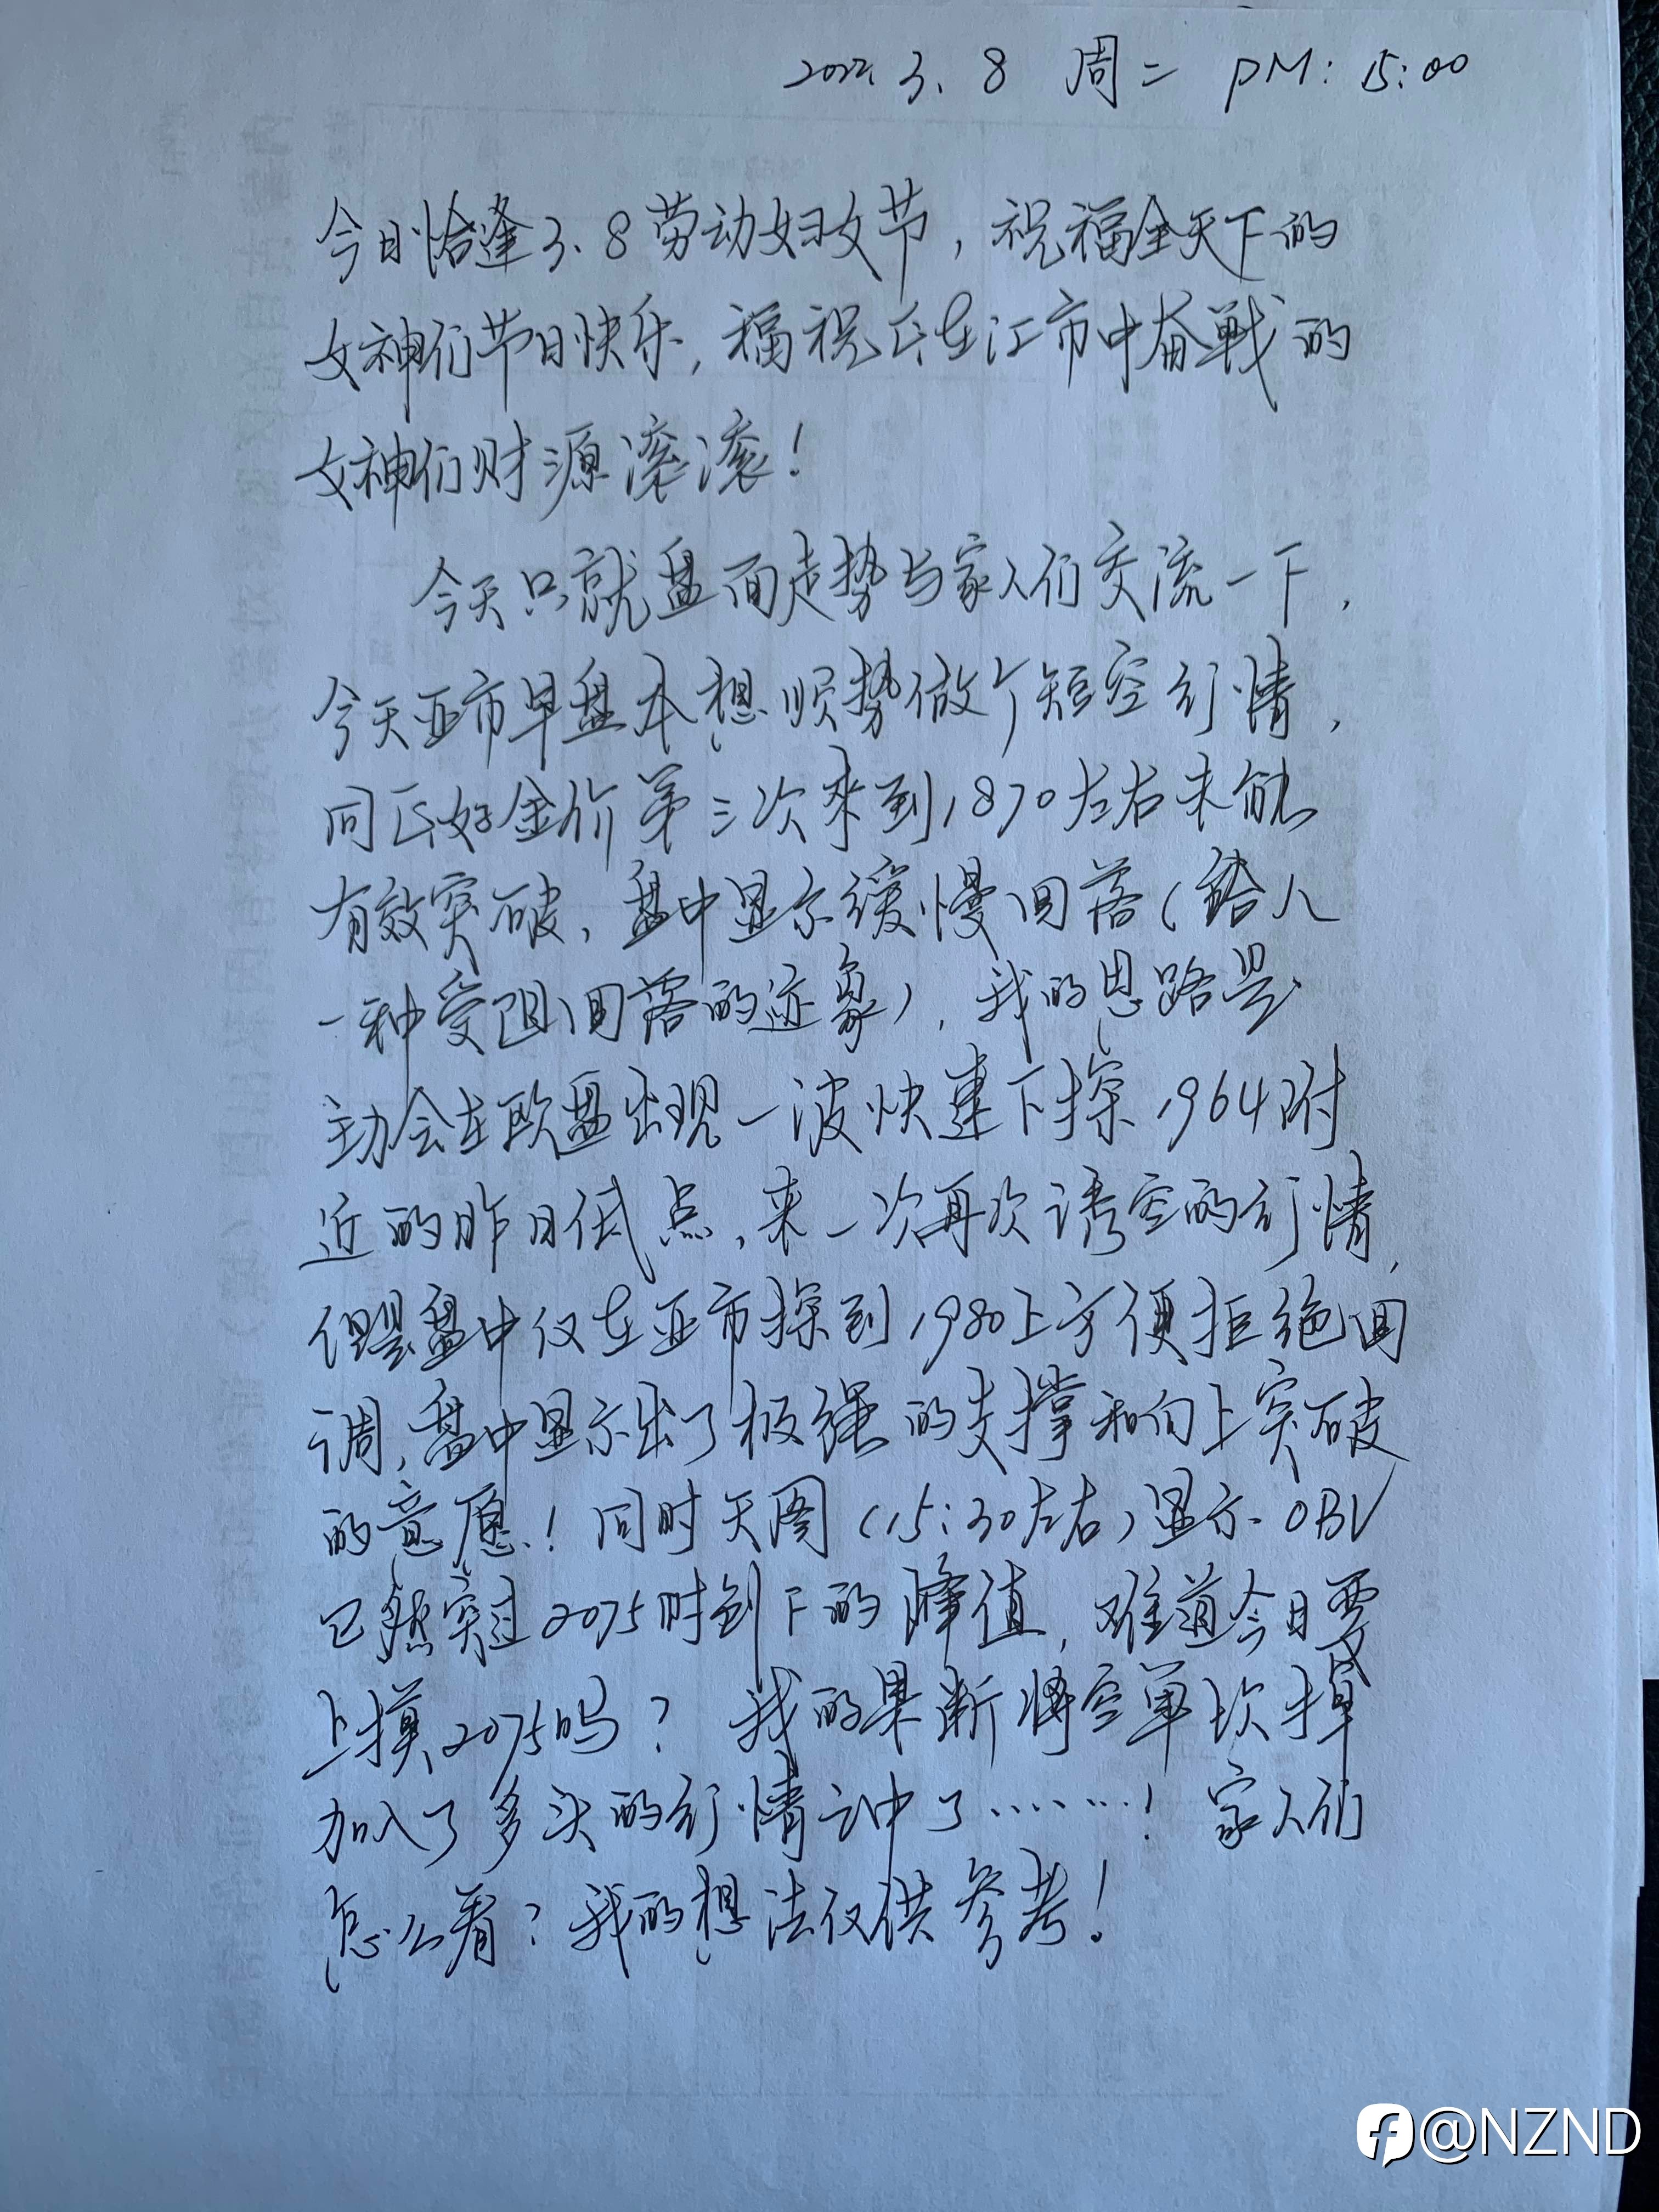 2022.3.8 周二 PM:15:00
今日恰逢3.8劳动妇女节,祝福全天下的
女神们节日快乐,福祝正在汇市中奋战的
女神们财源滚滚!
今天只就盘面走势与家人们交流一下,
今天亚市早盘本想顺势做个短空行情,
同正好金价第三次来到1870左右未能
有效突破,盘中显示缓慢回落(给人
一种受阻回落的迹象),我的思路是
主力会在欧盘出现一波快速下探1964附
近的昨日低点,来一次再次诱空的行情,
但是盘中仅在亚市探到1980上方便拒绝回
调,盘中显示出了极强的支撑和向上突破
的意愿!同时天图(15:30左右)显示OBV
已然突过2075时创下的峰值,难道今日要
上摸2075吗?我的果断将空单砍掉
加入了多头的行情之中了……!家人们
怎么看?我的想法仅供参考!
@NZND